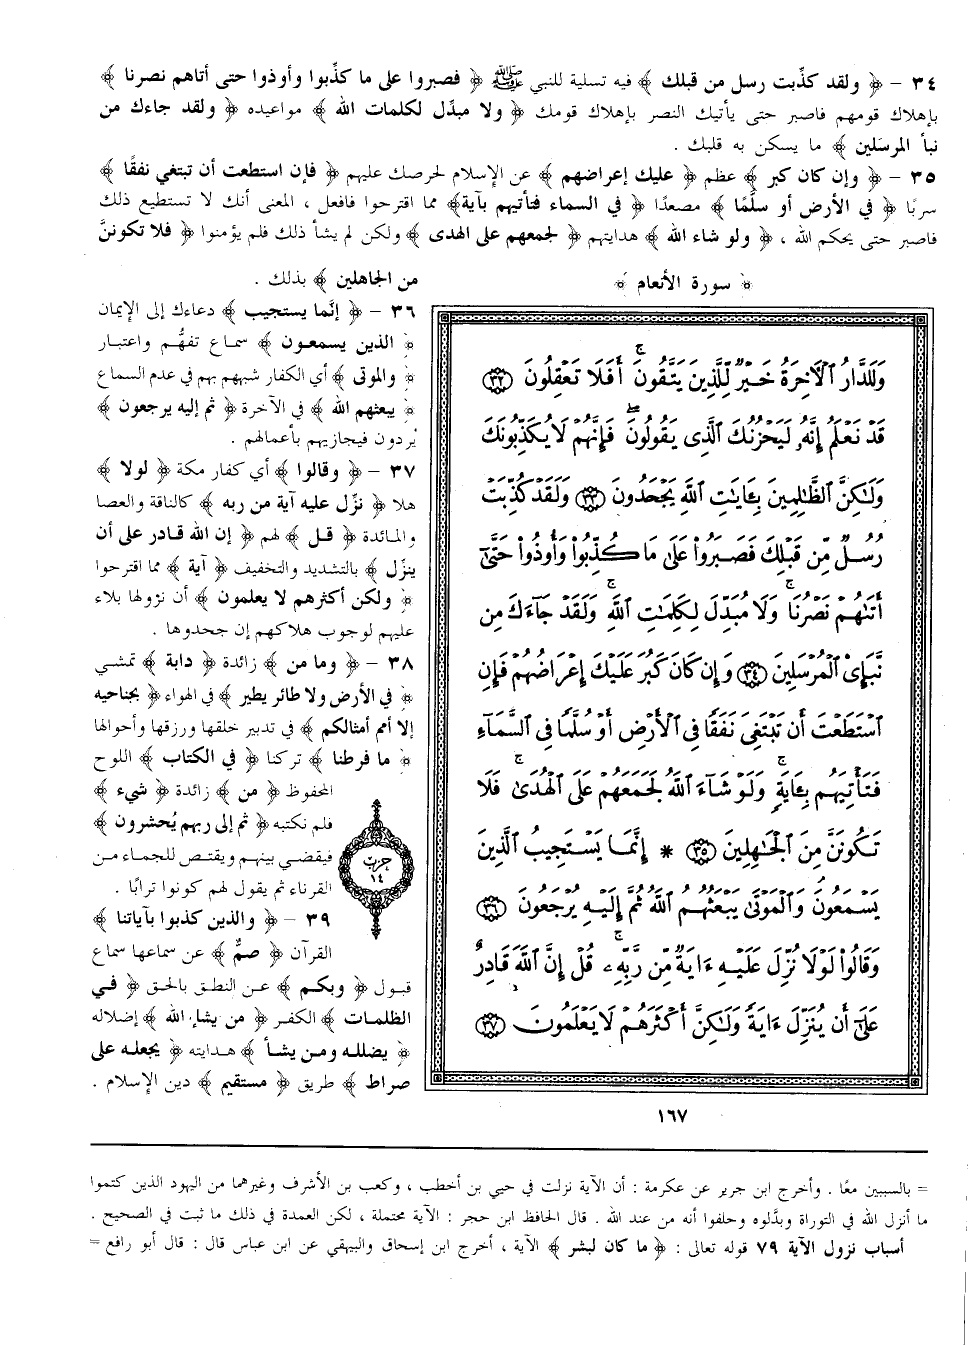 ٣٤ - ﴿ ولقد كذِّبت رسل من قبلك ﴾ فيه تسلية للنبي ﷺ ﴿ فصبروا على ما كذِّبوا وأوذوا حتى أتاهم نصرنا ﴾
بإهلاك قومهم فاصبر حتى يأتيك النصر بإهلاك قومك ﴿ ولا مبدِّل لكلمات الله ﴾ مواعيده ﴿ ولقد جاءك من
نبأ المرسَلين ﴾ ما يسكن به قلبك .
٣٥ - ﴿ وإن كان كبر ﴾ عظم ﴿ عليك إعراضهم ﴾ عن الإسلام لحرصك عليهم ﴿ فإن استطعت أن تبتغي نفقًا ﴾
سربًا ﴿ في الأرض أو سلَّمًا ﴾ مصعدًا ﴿ في السماء فتأتيهم بآية﴾ مما اقترحوا فافعل ، المعنى أنك لا تستطيع ذلك
فاصبر حتى يحكم الله ، ﴿ ولو شاء الله ﴾ هدايتهم ﴿ لجمعهم على الهدى ﴾ ولكن لم يشأ ذلك فلم يؤمنوا ﴿ فلا تكوننَّ
من الجاهلين ﴾ بذلك .
٣٦ - ﴿ إنَّما يستجيب ﴾ دعاءك إلى الإيمان
﴿ الذين يسمعون ﴾ سماع تفهُّم واعتبار
﴿ والموتى ﴾ أي الكفار شبههم بهم في عدم السماع
﴿ يبعثهم الله ﴾ في الآخرة ﴿ ثم إليه يرجعون ﴾
يُردون فيجازيهم بأعمالهم .
٣٧ - ﴿ وقالوا ﴾ أي كفار مكة ﴿ لولا ﴾
هلا ﴿ نزِّل عليه آية من ربه ﴾ كالناقة والعصا
والمائدة ﴿ قل ﴾ لهم ﴿ إن الله قادر على أن
ينزِّل ﴾ بالتشديد والتخفيف ﴿ آية ﴾ مما اقترحوا
﴿ ولكن أكثرهم لا يعلمون ﴾ أن نزولها بلاء
عليهم لوجوب هلاكهم إن جحدوها .
٣٨ - ﴿ وما من ﴾ زائدة ﴿ دابة ﴾ تمشي
﴿ في الأرض ولا طائر يطير ﴾ في الهواء ﴿ بجناحيه
إلا أمم أمثالكم ﴾ في تدبير خلقها ورزقها وأحوالها
﴿ ما فرطنا ﴾ تركنا ﴿ في الكتاب ﴾ اللوح
المحفوظ ﴿ من ﴾ زائدة ﴿ شيء ﴾
فلم نكتبه ﴿ ثم إلى ربهم يُحشرون ﴾
فيقضي بينهم ويقتص للجماء من
القرناء ثم يقول لهم كونوا ترابًا .
٣٩ - ﴿ والذين كذبوا بآياتنا ﴾
القرآن ﴿ صمٌّ ﴾ عن سماعها سماع
قبول ﴿ وبكم ﴾ عن النطق بالحق ﴿ في
الظلمات ﴾ الكفر ﴿ من يشإ الله ﴾ إضلاله
﴿ يضلله ومن يشأ ﴾ هدايته ﴿ يجعله على
صراط ﴾ طريق ﴿ مستقيم ﴾ دين الإسلام .
حزب
١٤
﴿ سورة الأنعام ﴾
وَلَلدَّارُ ٱلْأَخِرَةُ خَيْرٌ لِّلَّذِينَ يَتَّقُونَ ۚ أَفَلَا تَعْقِلُونَ ﴿٣٢﴾
قَدْ نَعْلَمُ إِنَّهُۥ لَيَحْزُنُكَ ٱلَّذِى يَقُولُونَ ۖ فَإِنَّهُمْ لَا يُكَذِّبُونَكَ
وَلَٰكِنَّ ٱلظَّٰلِمِينَ بِـَٔايَٰتِ ٱللَّهِ يَجْحَدُونَ ﴿٣٣﴾ وَلَقَدْ كُذِّبَتْ
رُسُلٌ مِّن قَبْلِكَ فَصَبَرُوا۟ عَلَىٰ مَا كُذِّبُوا۟ وَأُوذُوا۟ حَتَّىٰٓ
أَتَىٰهُمْ نَصْرُنَا ۚ وَلَا مُبَدِّلَ لِكَلِمَٰتِ ٱللَّهِ ۚ وَلَقَدْ جَآءَكَ مِن
نَّبَإِى۟ ٱلْمُرْسَلِينَ ﴿٣٤﴾ وَإِن كَانَ كَبُرَ عَلَيْكَ إِعْرَاضُهُمْ فَإِنِ
ٱسْتَطَعْتَ أَن تَبْتَغِىَ نَفَقًا فِى ٱلْأَرْضِ أَوْ سُلَّمًا فِى ٱلسَّمَآءِ
فَتَأْتِيَهُم بِـَٔايَةٍ ۚ وَلَوْ شَآءَ ٱللَّهُ لَجَمَعَهُمْ عَلَى ٱلْهُدَىٰ ۚ فَلَا
تَكُونَنَّ مِنَ ٱلْجَٰهِلِينَ ﴿٣٥﴾ * إِنَّمَا يَسْتَجِيبُ ٱلَّذِينَ
يَسْمَعُونَ ۘ وَٱلْمَوْتَىٰ يَبْعَثُهُمُ ٱللَّهُ ثُمَّ إِلَيْهِ يُرْجَعُونَ ﴿٣٦﴾
وَقَالُوا۟ لَوْلَا نُزِّلَ عَلَيْهِ ءَايَةٌ مِّن رَّبِّهِۦ ۚ قُلْ إِنَّ ٱللَّهَ قَادِرٌ
عَلَىٰٓ أَن يُنَزِّلَ ءَايَةً وَلَٰكِنَّ أَكْثَرَهُمْ لَا يَعْلَمُونَ ﴿٣٧﴾
١٦٧
= بالسببين معًا . وأخرج ابن جرير عن عكرمة : أن الآية نزلت في حيي بن أخطب ، وكعب بن الأشرف وغيرهما من اليهود الذين كتموا
ما أنزل الله في التوراة وبدَّلوه وحلفوا أنه من عند الله . قال الحافظ ابن حجر : الآية محتملة ، لكن العمدة في ذلك ما ثبت في الصحيح .
أسباب نزول الآية ٧٩ قوله تعالى : ﴿ ما كان لبشر ﴾ الآية ، أخرج ابن إسحاق والبيهقي عن ابن عباس قال : قال أبو رافع =